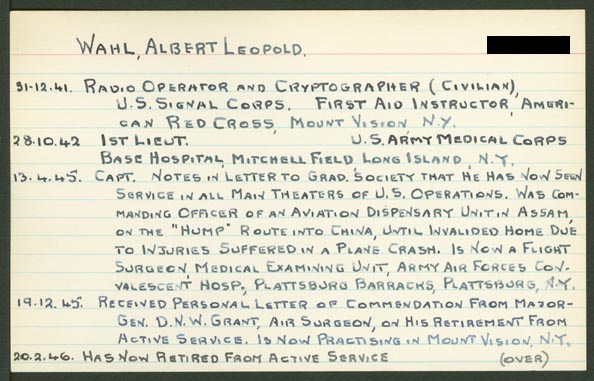 WAHL, ALBERT LEOPOLD.
31-12.41. RADIO OPERATOR AND CRYPTOGRAPHER (CIVILIAN),
U.S. SIGNAL CORPS. FIRST AID INSTRUCTOR, AMERI-
CAN RED CROSS, MOUNT VISION, N.Y.
28.10.42 1ST LIEUT. U.S. ARMY MEDICAL CORPS
BASE HOSPITAL, MITCHELL FIELD LONG ISLAND, N.Y.
13.4.45. CAPT. NOTES IN LETTER TO GRAD. SOCIETY THAT HE HAS NOW SEEN
SERVICE IN ALL MAIN THEATERS OF U.S. OPERATIONS. WAS COM-
MANDING OFFICER OF AN AVIATION DISPENSARY UNIT IN ASSAM,
ON THE "HUMP" ROUTE INTO CHINA, UNTIL INVALIDED HOME DUE
TO INJURIES SUFFERED IN A PLANE CRASH. IS NOW A FLIGHT
SURGEON, MEDICAL EXAMINING UNIT, ARMY AIR FORCES CON-
VALESCENT HOSP., PLATTSBURG BARRACKS, PLATTSBURG, N.Y.
19.12.45. RECEIVED PERSONAL LETTER OF COMMENDATION FROM MAJOR-
GEN. D.N.W. GRANT, AIR SURGEON, ON HIS RETIREMENT FROM
ACTIVE SERVICE. IS NOW PRACTISING IN MOUNT VISION, N.Y.
20.2.46. HAS NOW RETIRED FROM ACTIVE SERVICE (OVER)